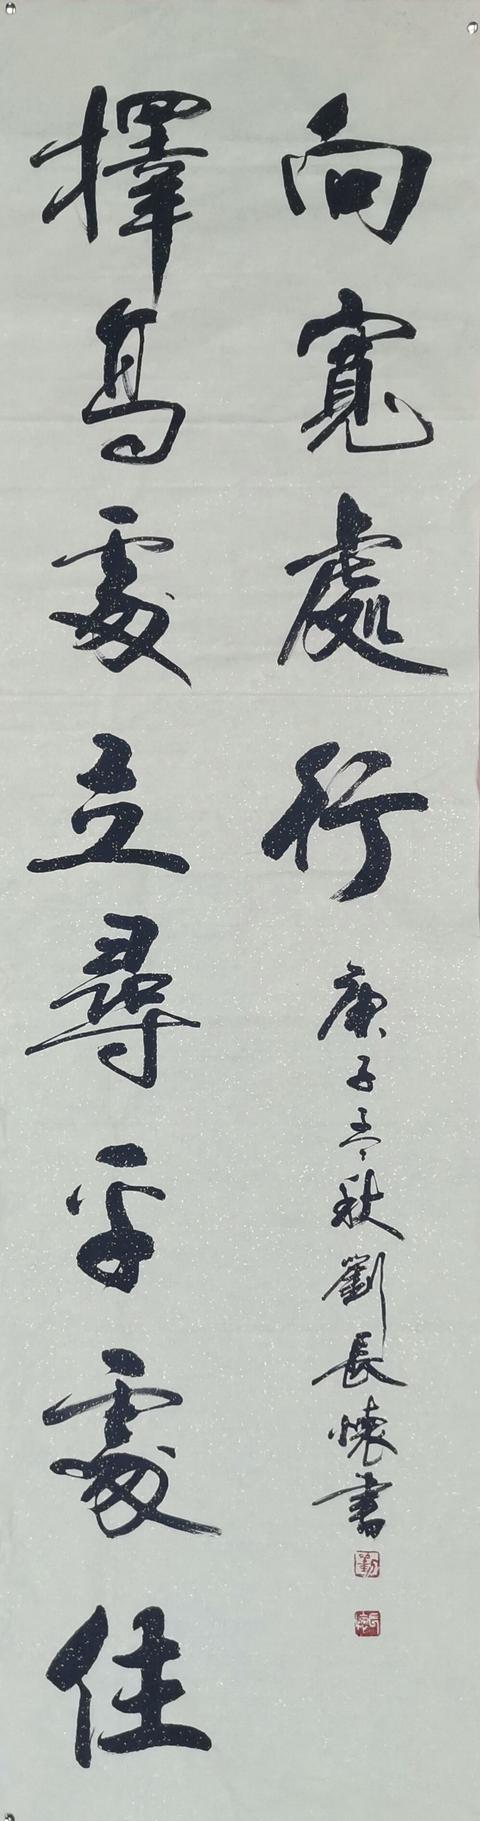 擇高處立尋平處住
向寬處行 庚子孟秋劉長懷書